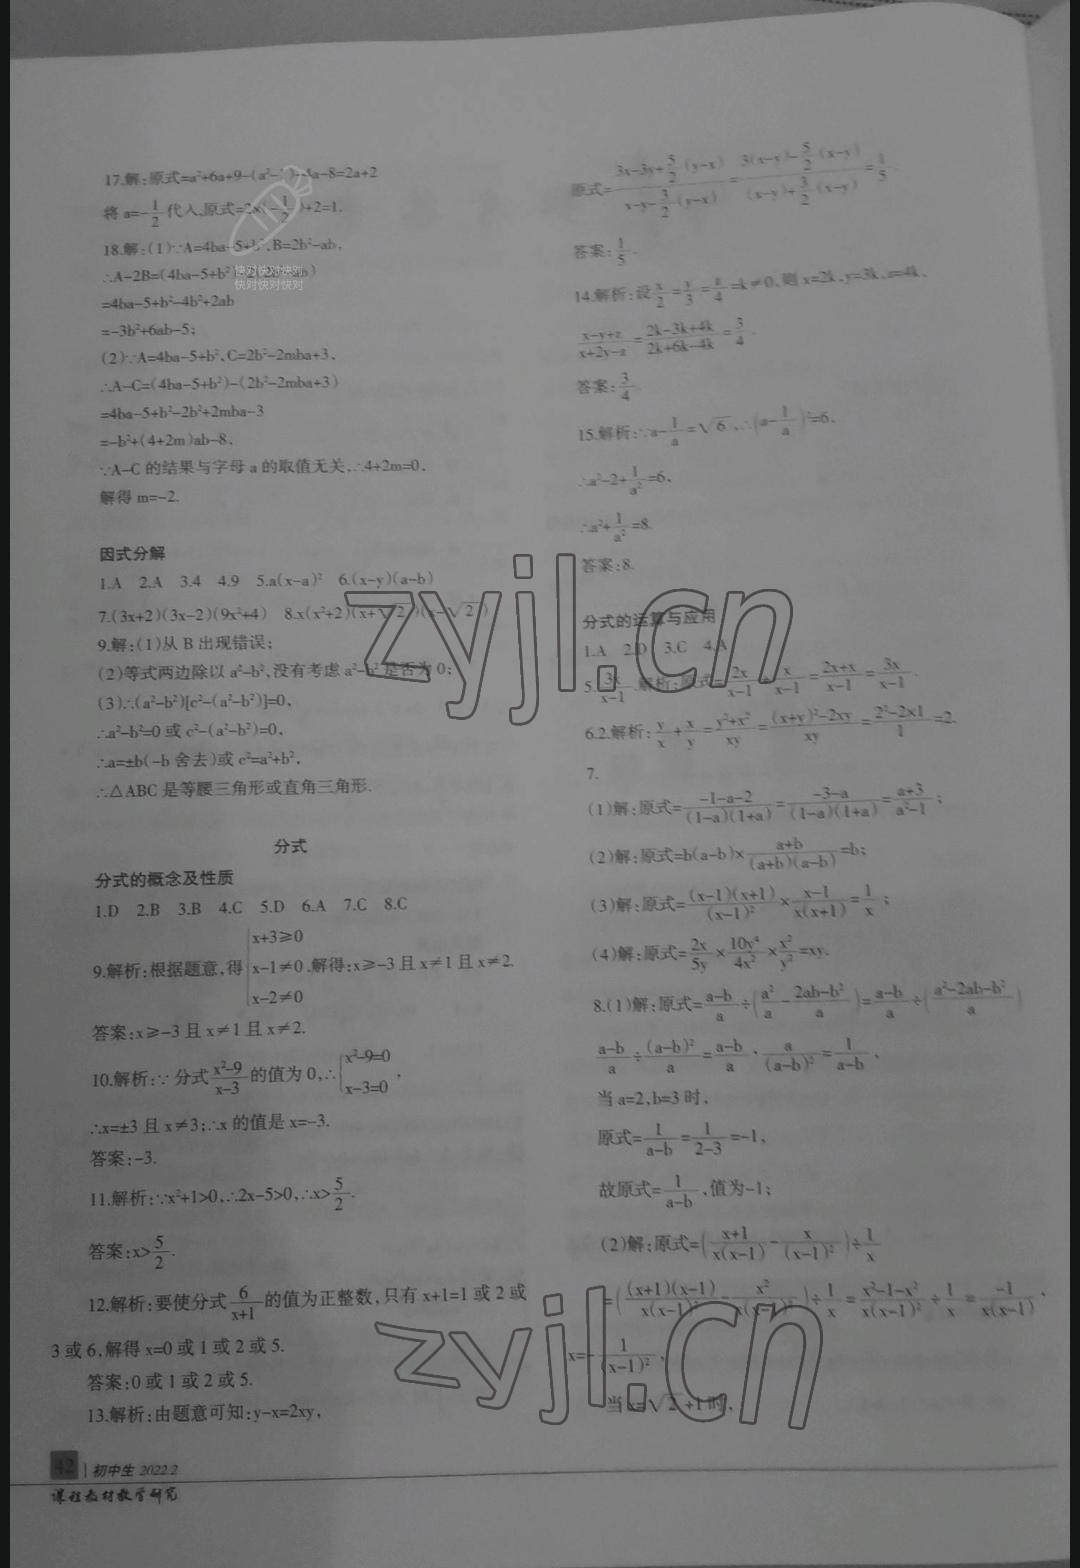 17.解:原式=a²+6a+9-(a²-1)-4a-8=2a+2
将 a=-1/2 代入,原式=2×(-1/2)+2=1.
18.解:(1)∵A=4ba-5+b²,B=2b²-ab,
∴A-2B=(4ba-5+b²)-2(2b²-ab)
=4ba-5+b²-4b²+2ab
=-3b²+6ab-5;
(2)∵A=4ba-5+b²,C=2b²-2mba+3,
∴A-C=(4ba-5+b²)-(2b²-2mba+3)
=4ba-5+b²-2b²+2mba-3
=-b²+(4+2m)ab-8,
∵A-C 的结果与字母 a 的取值无关,∴4+2m=0,
解得 m=-2.
因式分解
1.A 2.A 3.4 4.9 5.a(x-a)² 6.(x-y)(a-b)
7.(3x+2)(3x-2)(9x²+4) 8.x(x²+2)(x+√2)(x-√2)
9.解:(1)从 B 出现错误;
(2)等式两边除以 a²-b²,没有考虑 a²-b² 是否为 0;
(3)∴(a²-b²)[c²-(a²-b²)]=0,
∴a²-b²=0 或 c²-(a²-b²)=0,
∴a=±b(-b 舍去)或 c²=a²+b²,
∴△ABC 是等腰三角形或直角三角形.
分式
分式的概念及性质
1.D 2.B 3.B 4.C 5.D 6.A 7.C 8.C
9.解析:根据题意,得{x+3≥0 x-1≠0 x-2≠0 .解得:x≥-3 且 x≠1 且 x≠2.
答案:x≥-3 且 x≠1 且 x≠2.
10.解析:∵分式(x²-9)/(x-3)的值为 0,∴{x²-9=0 x-3=0 ,
∴x=±3 且 x≠3;∴x 的值是 x=-3.
答案:-3.
11.解析:∵x²+1>0,∴2x-5>0,∴x>5/2.
答案:x>5/2.
12.解析:要使分式6/(x+1)的值为正整数,只有 x+1=1 或 2 或
3 或 6,解得 x=0 或 1 或 2 或 5.
答案:0 或 1 或 2 或 5.
13.解析:由题意可知:y-x=2xy,
原式=(3x-3y+5/2(y-x))/(x-y-3/2(y-x))=(3(x-y)-5/2(x-y))/((x-y)+3/2(x-y))=1/5.
答案:1/5.
14.解析:设x/2=y/3=z/4=k≠0,则 x=2k,y=3k,z=4k,
(x-y+z)/(x+2y-z)=(2k-3k+4k)/(2k+6k-4k)=3/4.
答案:3/4.
15.解析:∵a-1/a=√6,∴(a-1/a)²=6,
∴a²-2+1/a²=6,
∴a²+1/a²=8.
答案:8.
分式的运算与应用
1.A 2.D 3.C 4.A
5.3x/(x-1) 解析:原式=2x/(x-1)+x/(x-1)=(2x+x)/(x-1)=3x/(x-1).
6.2.解析:y/x+x/y=(y²+x²)/xy=((x+y)²-2xy)/xy=(2²-2×1)/1=2.
7.
(1)解:原式=(-1-a-2)/((1-a)(1+a))=(-3-a)/((1-a)(1+a))=(a+3)/(a²-1);
(2)解:原式=b(a-b)×(a+b)/((a+b)(a-b))=b;
(3)解:原式=((x-1)(x+1))/(x-1)²×(x-1)/(x(x+1))=1/x;
(4)解:原式=2x/5y×10y⁴/4x²×x²/y²=xy.
8.(1)解:原式=(a-b)/a÷(a²/a-(2ab-b²)/a)=(a-b)/a÷((a²-2ab-b²)/a)
(a-b)/a÷(a-b)²/a=(a-b)/a·a/(a-b)²=1/(a-b),
当 a=2,b=3 时,
原式=1/(a-b)=1/(2-3)=-1,
故原式=1/(a-b),值为-1;
(2)解:原式=((x+1)/(x(x-1))-x/(x-1)²)÷1/x
=((x+1)(x-1)/(x(x-1)²)-x²/(x(x-1)²))÷1/x=(x²-1-x²)/(x(x-1)²)÷1/x=-1/(x(x-1)·
x=-1/(x-1)²,
当 x=√2+1 时,
42 初中生 2022.2
课程教材教学研究
快对快对快对
快对快对快对
zyjl.cn
zyjl.cn